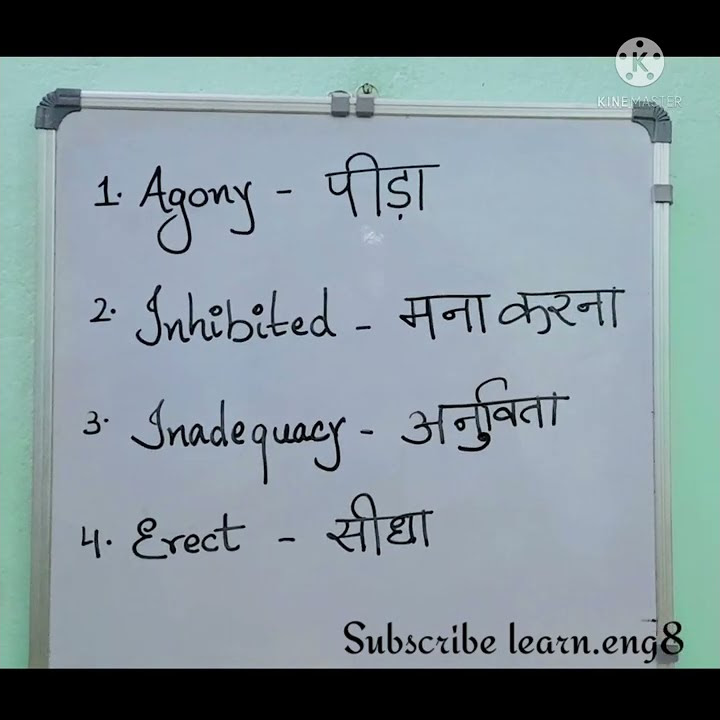 KINEMASTER
1. Agony - पीड़ा
2. Inhibited - मना करना
3. Inadequacy - अनुविता
4. Erect - सीधा
Subscribe learn.eng8